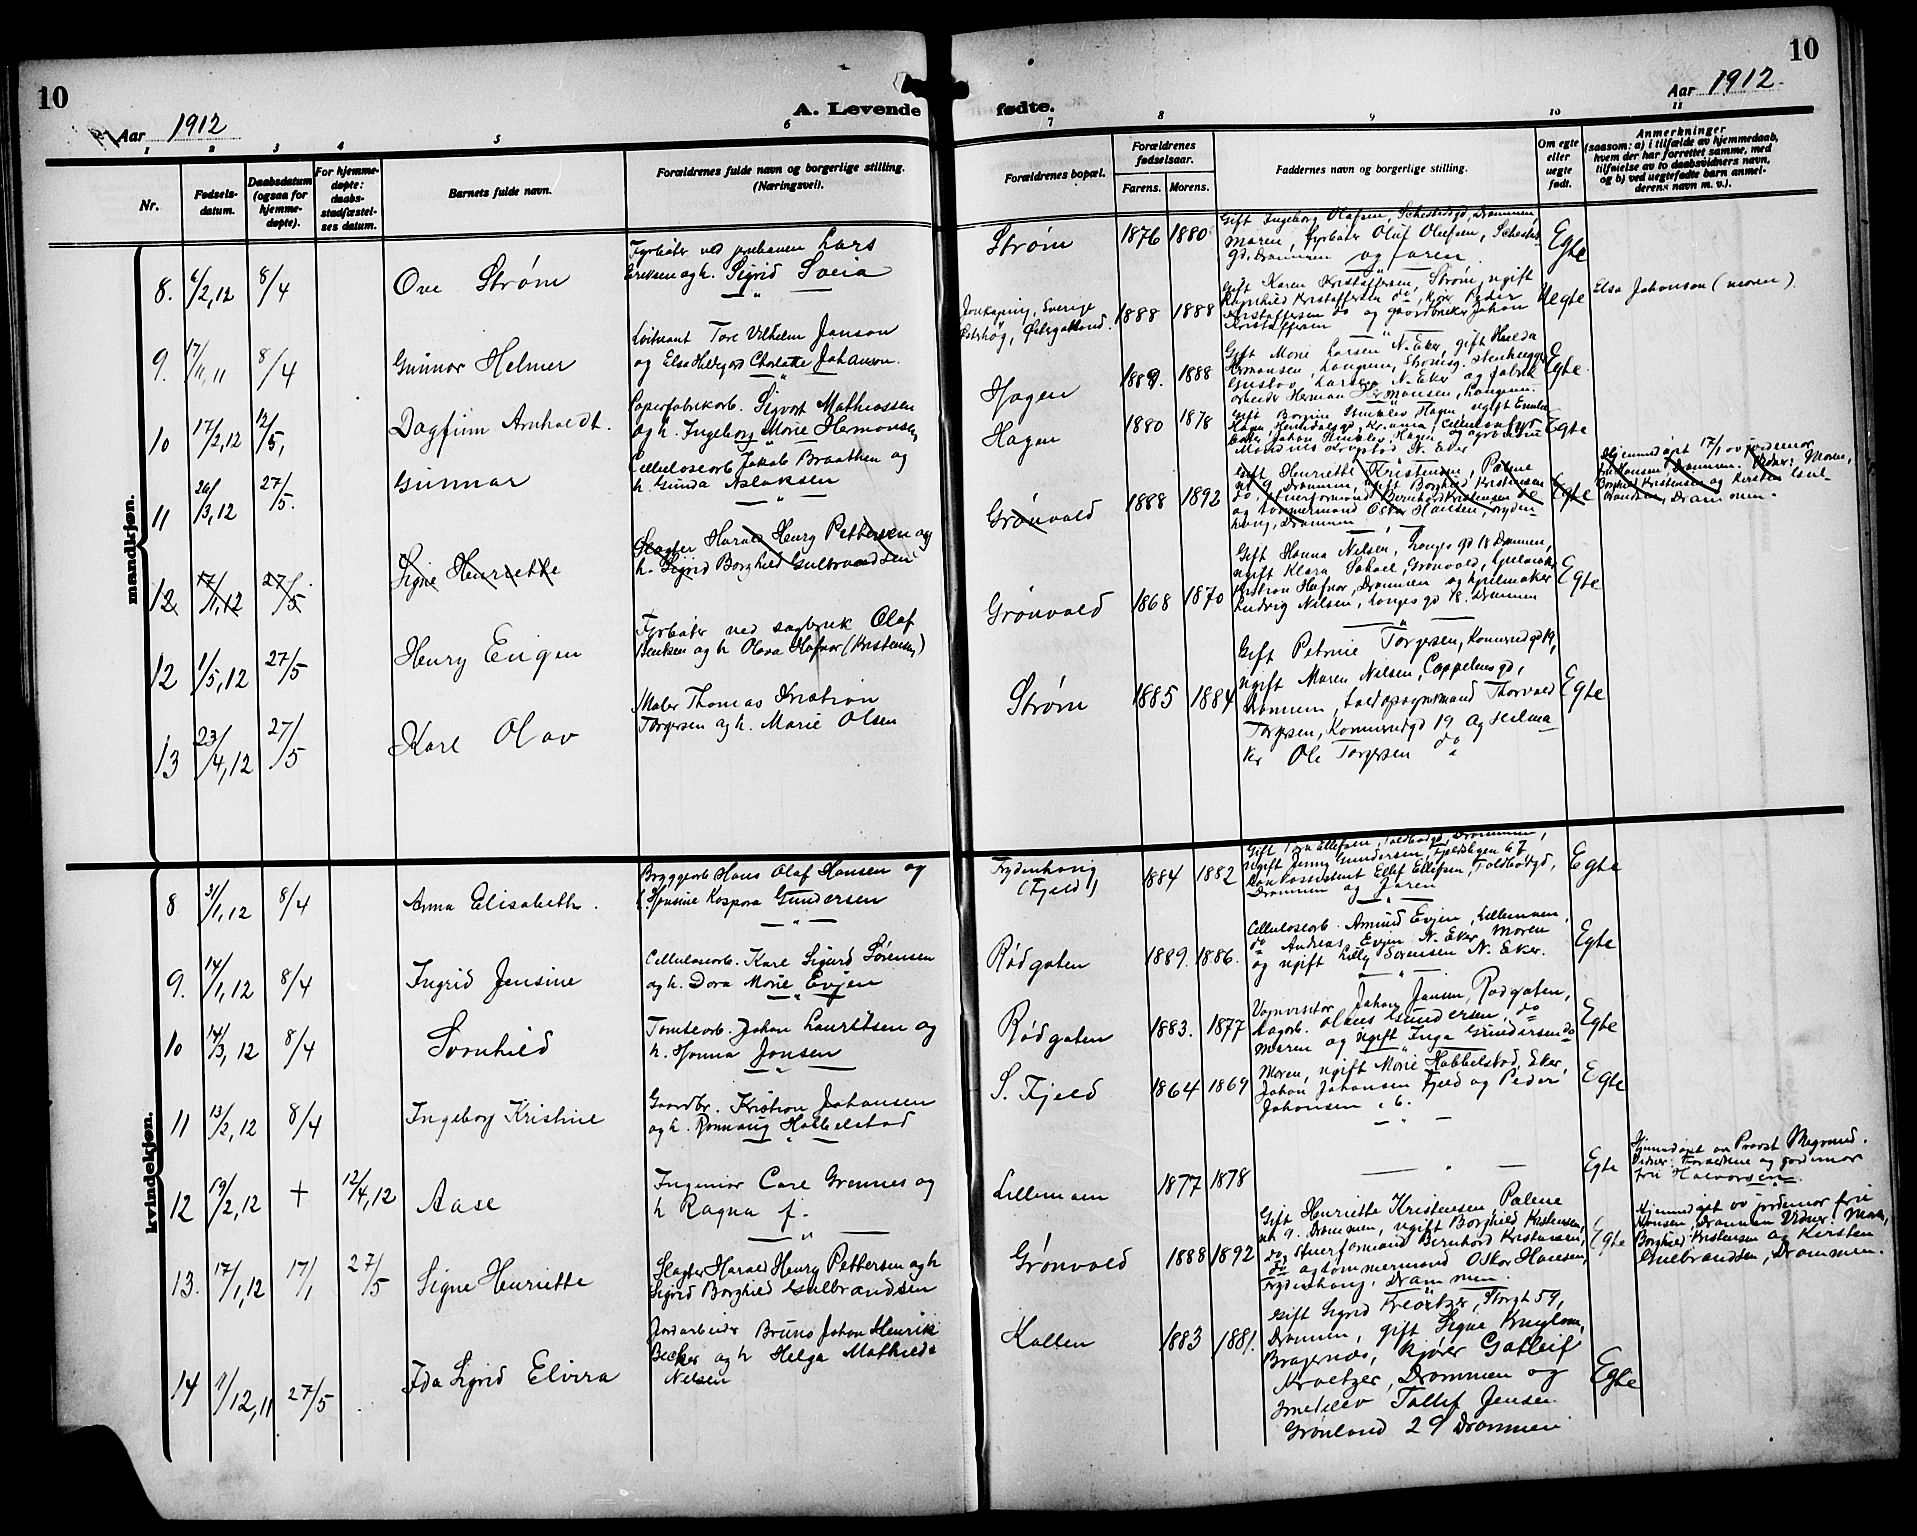 10
10
Aar 1912
A. Levende
fødte.
Aar 1912
1 2 3 4 5 6
7 8 9 10 11
Nr.
Fødsels-
datum.
Daabsdatum
(ogsaa for
hjemme-
døpte).
For hjemme-
døpte:
daabs-
stadfæstel-
ses datum.
Barnets fulde navn.
Forældrenes fulde navn og borgerlige stilling.
(Næringsvei).
Forældrenes bopæl.
Forældrenes
fødselsaar.
Farens. Morens.
Faddernes navn og borgerlige stilling.
Om egte
eller
uegte
født.
Anmerkninger
(saasom: a) i tilfælde av hjemmedaab,
hvem der har forrettet samme, med
tilføielse av to daabsvidners navn,
og b) ved uegtefødte barn anmel-
derens navn m. v.).
mandkjøn.
8. 6/2, 12 8/4 Ove Strøm
Fyrbøter ved jernbanen Lars
Eriksen og h. Sigrid Sveia
Strøm 1876 1880
Gift Ingeborg Olafsen, Drammen,
Maren, Fyrbøter Oluf Olufsen,
Drammen og faren
Egte
9. 17/11, 11 8/4 Gunnar Helmer
Løitnant Tore Vilhelm Janson
og Elsa Charlotte Johanson.
Jønkøping, Sverige
1888 1888
Gift Karen Kristoffersen, Strøm, ugift
Ragnhild Kristoffersen do, Peder
Kristoffersen do og gaardbruker Johan
Kristoffersen
Uegte
Elsa Johanson (moren).
10 17/2, 12 12/5, Dagfinn Arnholdt.
Papirfabrikarb. Sigvart Mathiassen
og h. Ingeborg Marie Hermansen
Hagen 1889. 1888
Gift Marie Larsen N. Eker, gift Hulda
Hermansen, Langum,
Gustav Larsen N. Eker og fabrik
arbeider Herman Hermansen, Langum.
Egte.
11 26/3, 12 27/5. Gunnar
Celluloseorb Jakob Braathen og
h. Gunda Aslaksen
Hagen 1880 1878
Egte
12 17/1, 12 27/5. Signe Henriette
Slagter Harald Henry Pettersen og
h. Sigrid Borghild Gulbrandsen
Grønvold 1888 1892
Gift Henriette Kristensen, Pælme
gt 9 Drammen, ugift Borghild Kristensen
do, Stuerformand Bernhard Kristensen do
og tømmermand Oskar Hansen, Fryden-
haug, Drammen
Egte
Hjemmedøpt 17/1 av jordemor
Hansen, Drammen. Vidner: Moren,
Borghild Kristensen og Kirsten Gul-
brandsen, Drammen.
12 1/5, 12 27/5 Henry Eugen
Fyrbøter ved sagbruk Olaf
Bentsen og h Olava Hafnor (Kristensen)
Grønvold 1868 1870
Gift Hanna Nilsen, Langes gd 18 Drammen,
ugift Klara Grønvold, hjulmaker
Kristian Hafnor, Drammen og hjulmaker
Ludvig Nilsen, Langes gd 18. Drammen
Egte
13 23/4, 12 27/5 Karl Olav
Maler Thomas Kristian
Torgersen og h. Marie Olsen
Strøm 1885 1884
Gift Petrine Torgersen, Konnerudgd 19,
ugift Maren Nilsen, Cappelensgd,
Drammen, toldopsynsmand Thorvald
Torgersen, Konnerudgd 19 og Seilma
ker Ole Torgersen do
Egte
kvindekjøn.
8 31/1, 12 8/4 Anna Elisabeth.
Bryggeorb Hans Olaf Hansen og
h. Hansine Kaspara Gundersen
Frydenhaug
(Fjeld)
1884 1882
Gift Ellefsen, Toldbodgd, Drammen,
Ugift Jenny Gundersen, Fjeldslygen 67
Ellef Ellefsen, Toldbodgd,
Drammen og Faren
Egte
9. 14/1, 12 8/4 Ingrid Jensine
Celluloseorb. Karl Sigurd Sørensen
og h. Dora Marie Evjen
Rødgaten 1889. 1886.
Celluloseorb. Amund Evjen, Lillemoen,
do Andreas Evjen N. Eker Moren
og ugift Lilly Sørensen N. Eker.
Egte
10 14/3, 12 8/4 Sornhild
Tomteorb. Johan Lauritsen og
h. Hanna Jonsen
Rødgaten 1883. 1877
Vognvisitør Johan Jansen, Rødgaten,
Olaus Gundersen, do
Maren og ugift Inga Gundersen do
Egte
11 13/2, 12 8/4 Ingeborg Kristine
Gaardbr. Kristian Johansen
og h. Rønnaug Hobbelstad
S. Fjeld 1864 1869
Moren, ugift Marie Hobbelstad, Eker,
Johan Johansen Fjeld og Peder
Johansen
Egte
12 19/2, 12 + 12/4, 12 Aase
Ingeniør Carl Grønnes og
h Ragna f.
Lillemoen 1877 1878
Egte
Hjemmedøpt av Provst Magnund.
Vidner: Forældrene og jordemor
Halvorsen.
13. 17/1, 12 17/1 27/5 Signe Henriette
Slagter Harald Henry Pettersen og h
Sigrid Borghild Gulbrandsen
Grønvold 1888 1892
Gift Henriette Kristensen, Pælme
gt 9. Drammen, ugift Borghild Kristensen,
do, stuerformand Bernhard Kristensen,
do og tømmermand Oskar Hansen,
Frydenhaug, Drammen.
Egte
Hjemmedøpt av jordemor fru
Hansen, Drammen Vidner: Moren,
Borghild Kristensen og Kirsten
Gulbrandsen, Drammen.
14 1/12, 11 27/5 Ida Sigrid Elvira
Jordarbeider Bruno Johan Henrik
Becker og h Helga Mathilde
Nilsen
Kallen 1883 1881.
Gift Sigrid Kroetzer, Storgt 59,
Drammen, gift Signe
Bragernæs, kjører Gotleif
Kroetzer, Drammen og
Tollef Jensen
Grønland 29 Drammen
Egte